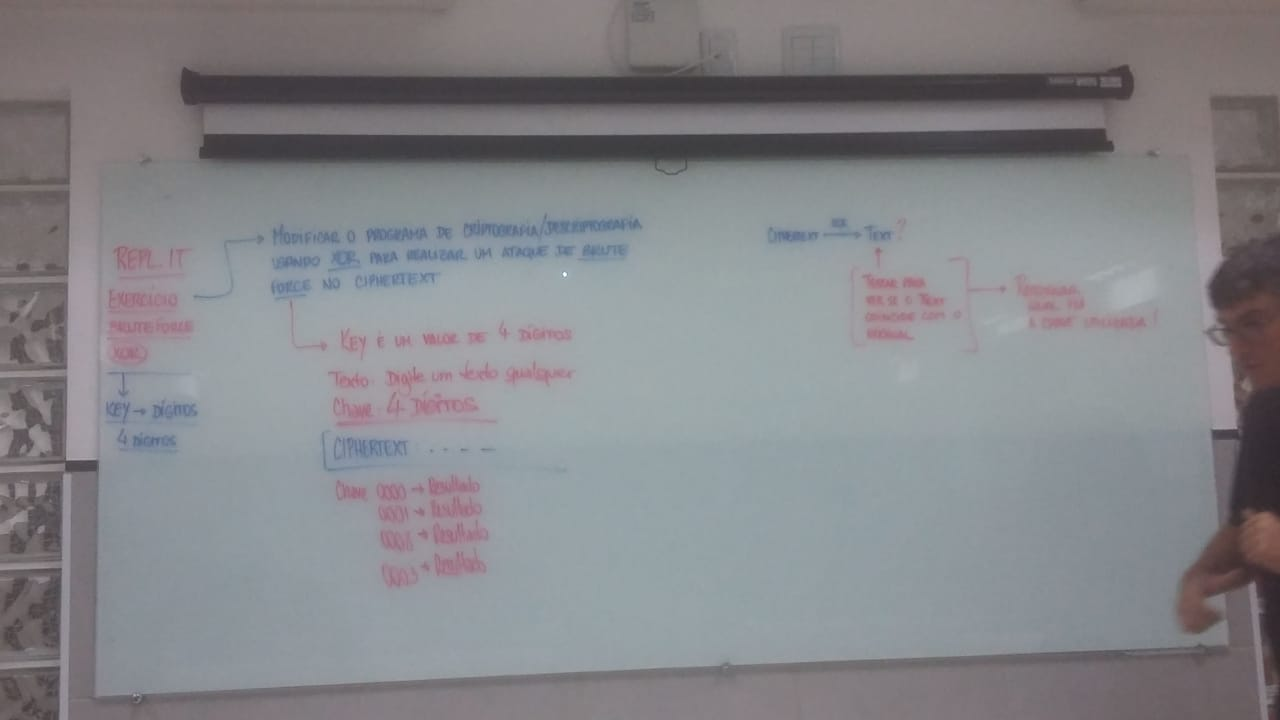 REPL.IT
EXERCÍCIO
BRUTEFORCE
XOR
KEY → DÍGITOS
4 DÍGITOS
MODIFICAR O PROGRAMA DE CRIPTOGRAFIA/DESCRIPTOGRAFIA
USANDO XOR PARA REALIZAR UM ATAQUE DE BRUTE
FORCE NO CIPHERTEXT
KEY É UM VALOR DE 4 DÍGITOS
Texto: Digite um texto qualquer
Chave: 4 DÍGITOS
CIPHERTEXT: - - - -
Chave 0000 → Resultado
0001 → Resultado
→ Resultado
0003 → Resultado
CIPHERTEXT XOR → TEXT?
TESTAR PARA
VER SE O TEXT
COINCIDE COM O
ORIGINAL
→ RETORNAR
QUAL FOI
A CHAVE UTILIZADA!